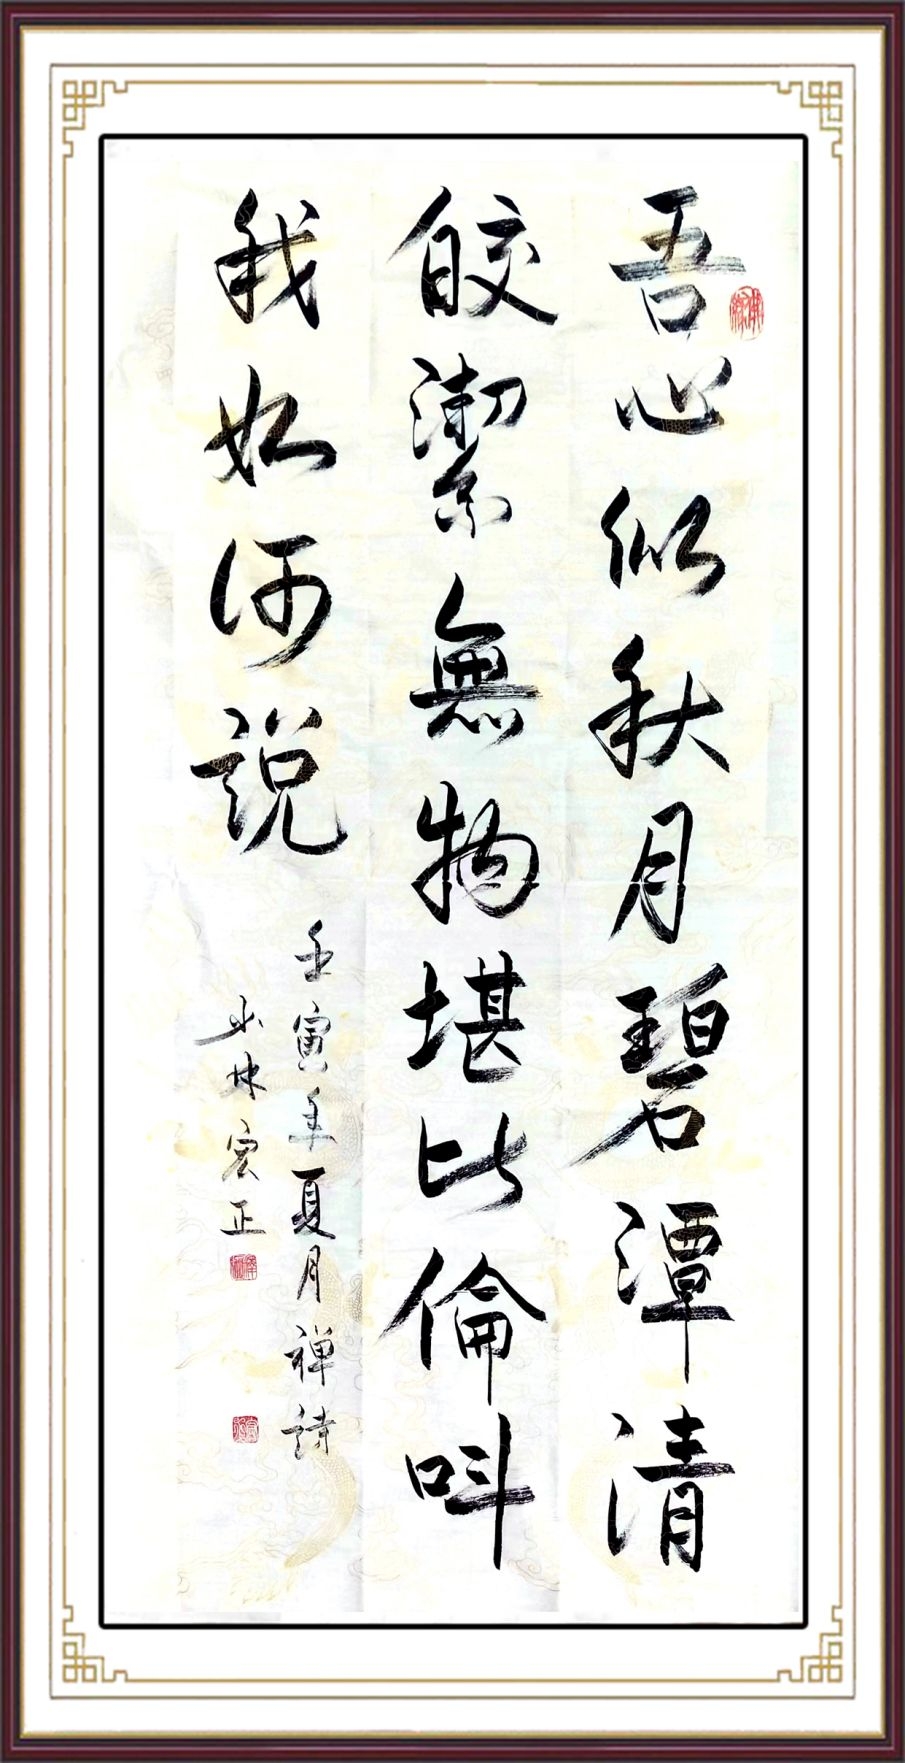 吾心似秋月碧潭清
皎潔無物堪比倫呌
我如何說
壬寅年夏月禅詩
林宏正